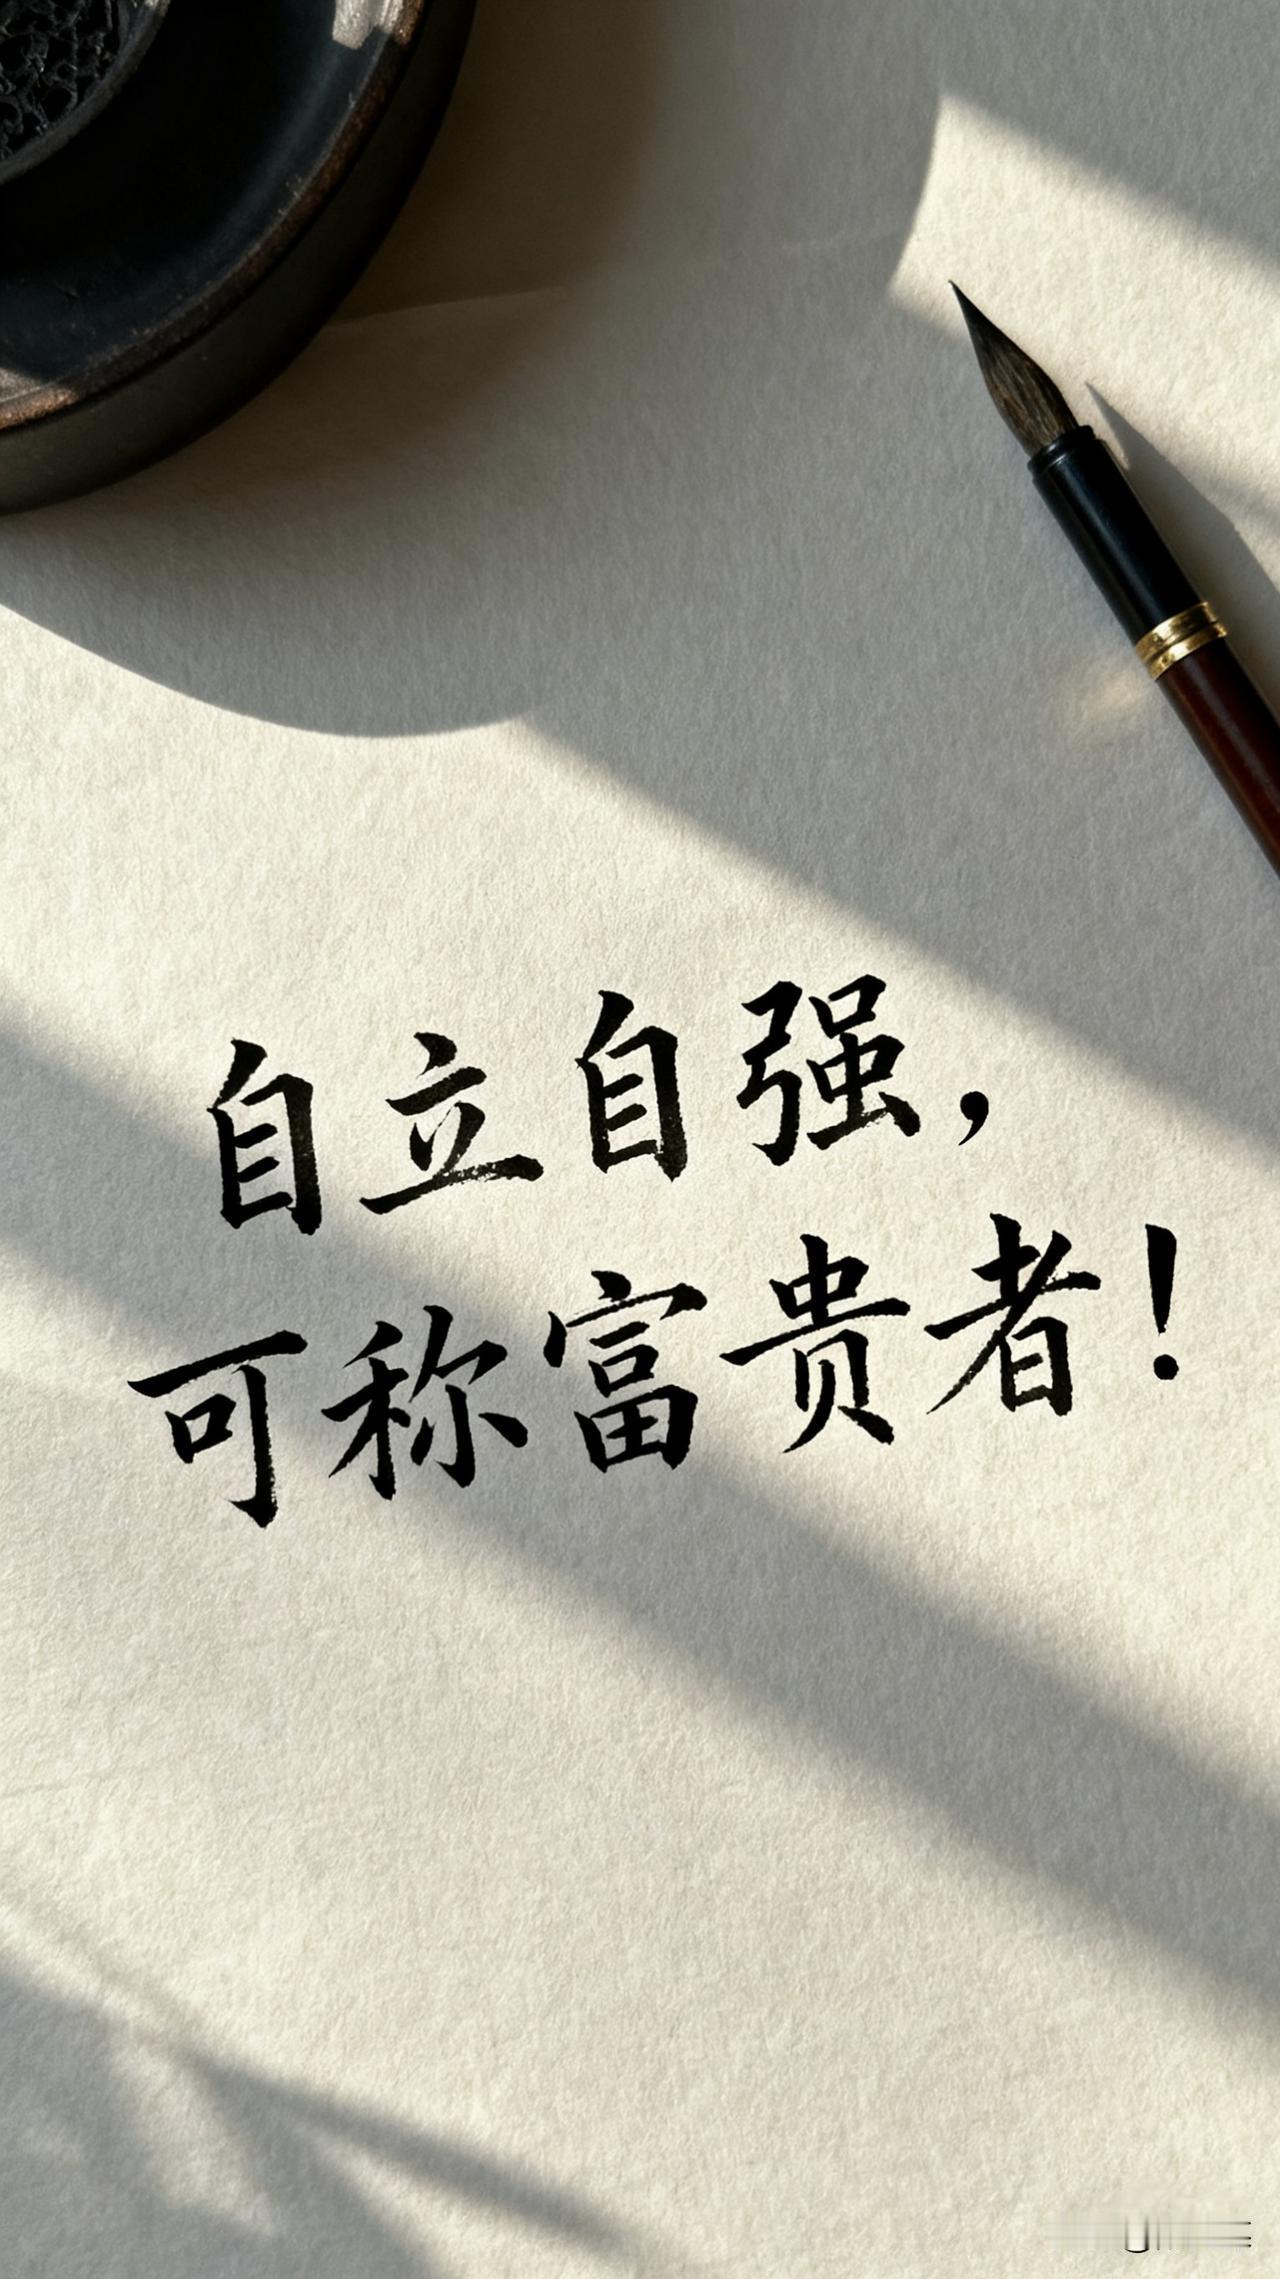 自立自强，
可称富贵者！